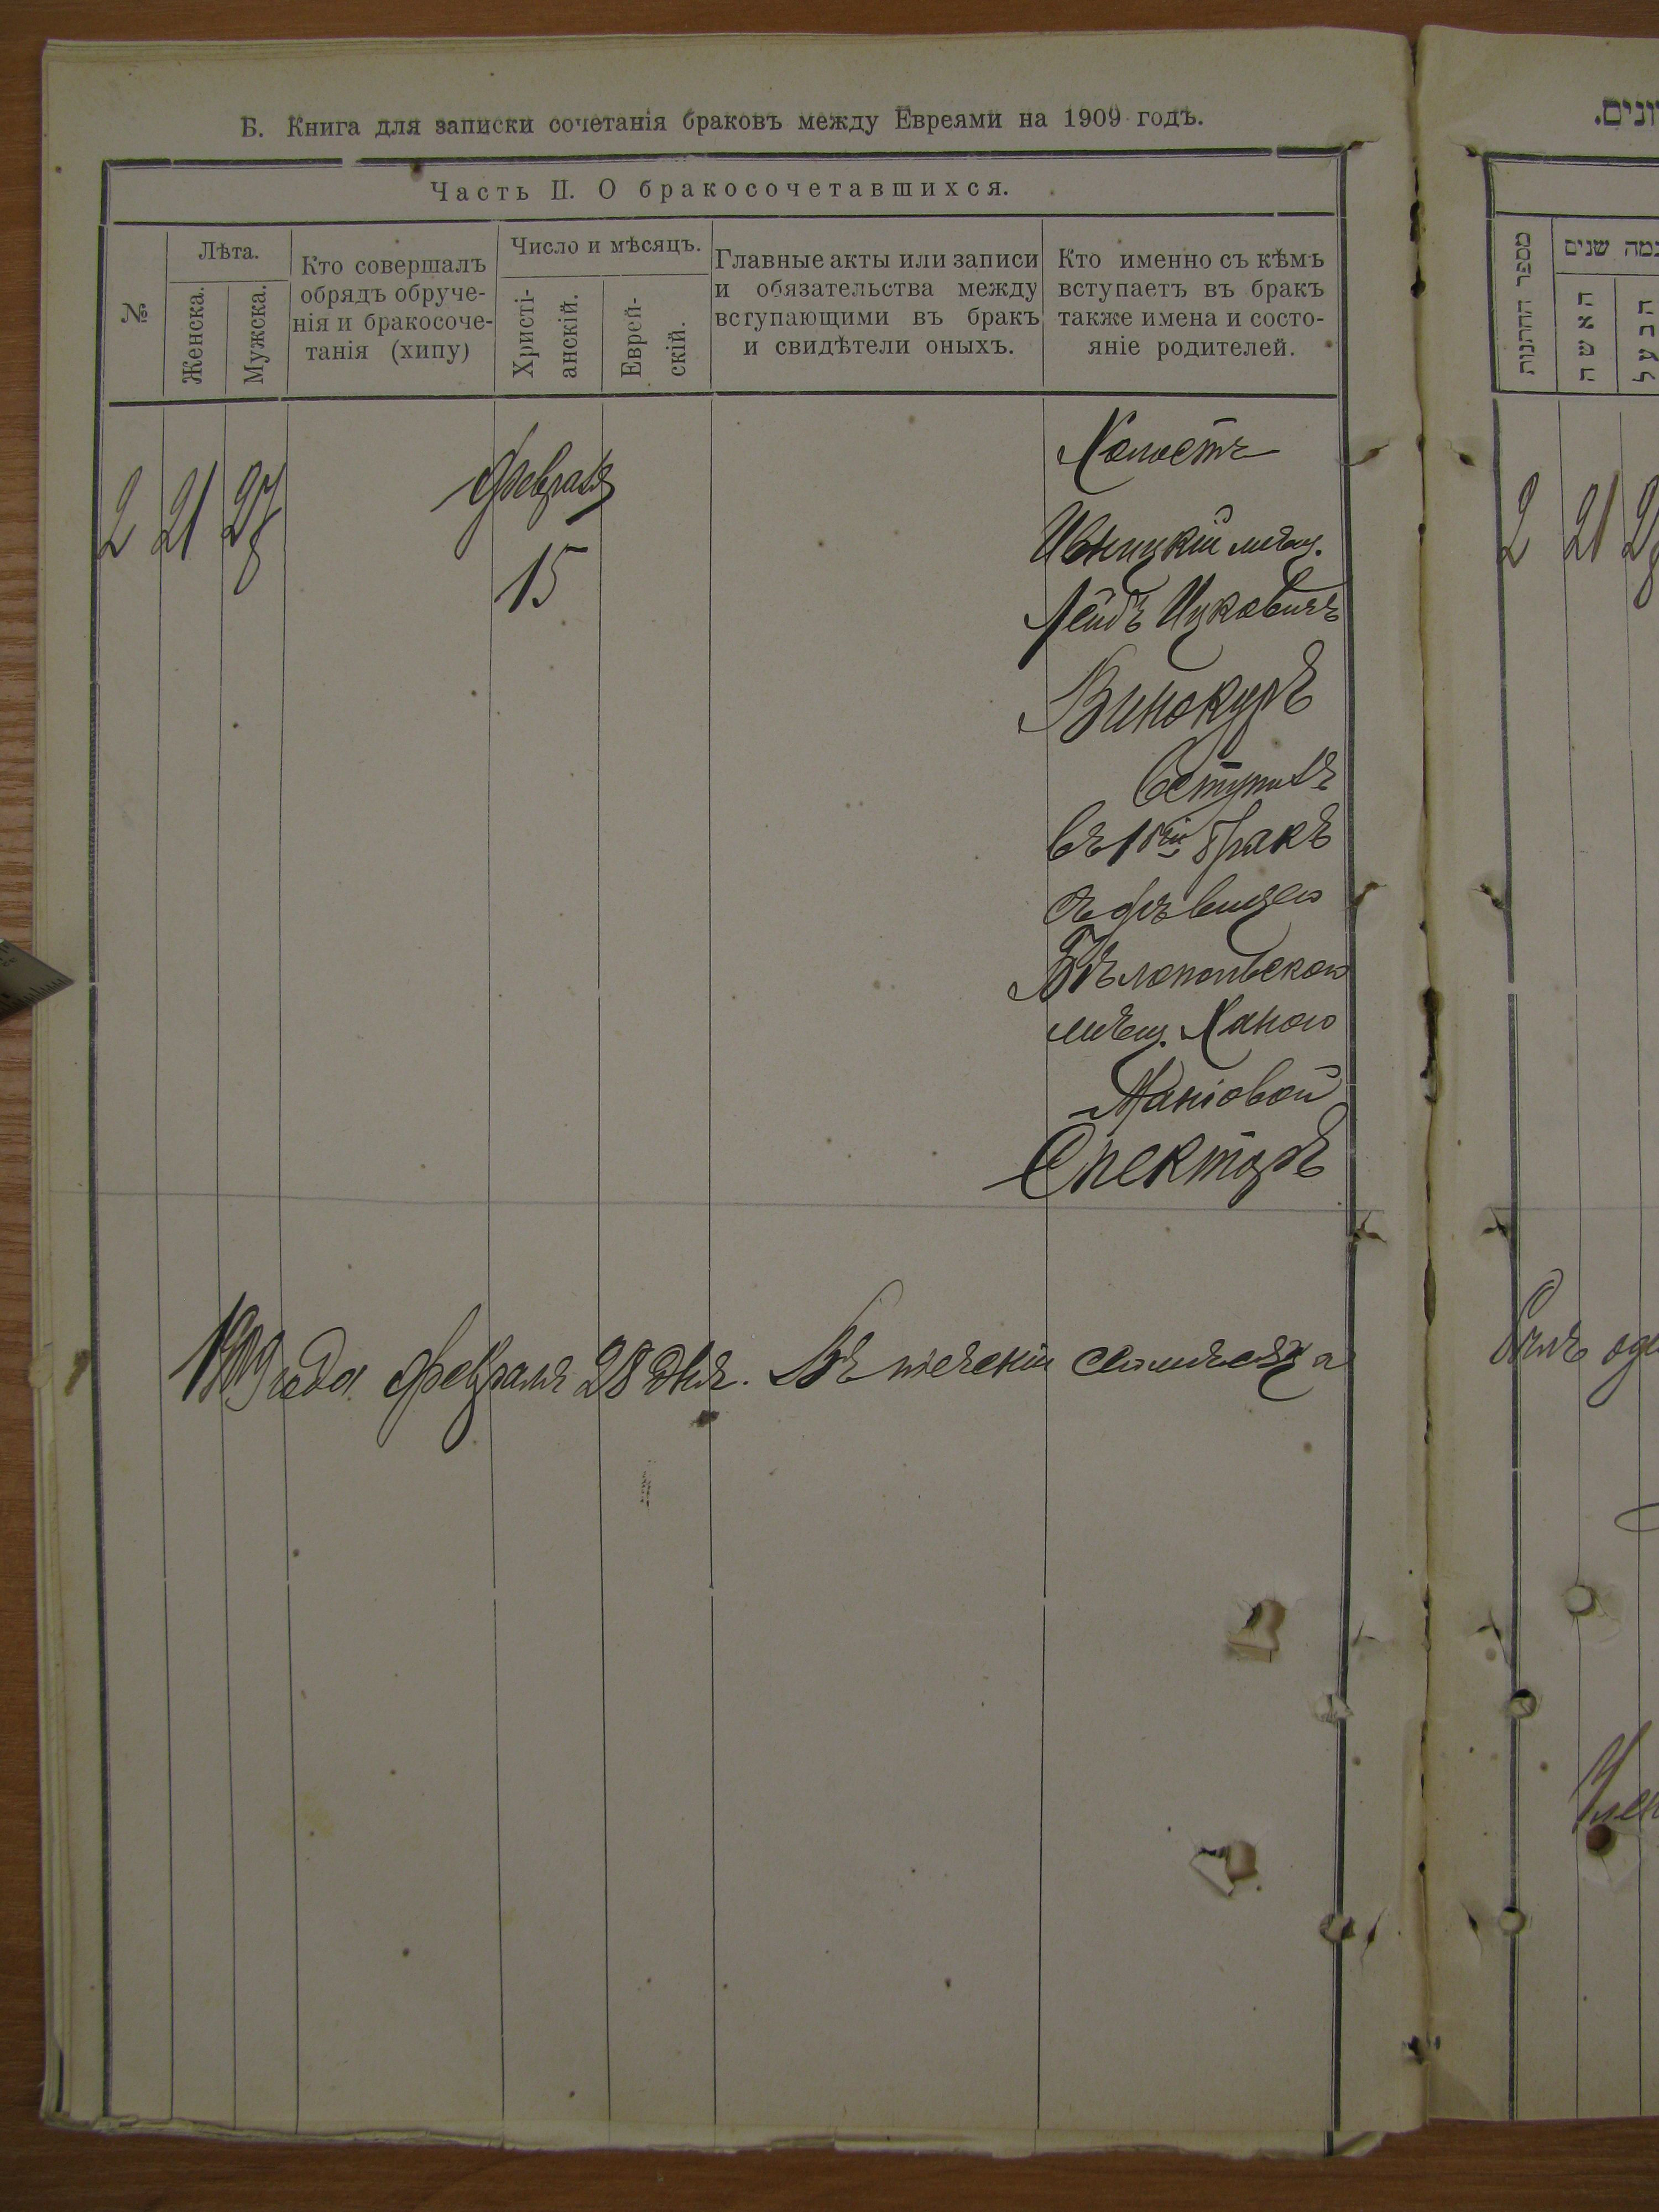 Б. Книга для записки сочетанія браковъ между Евреями на 1909 годъ.
Часть II. О бракосочетавшихся.
№
Лѣта.
Женска.
Мужска.
Кто совершалъ
обрядъ обруче-
нія и бракосоче-
танія (хипу)
Число и мѣсяцъ.
Христі-
анскій.
Еврей-
скій.
Главные акты или записи
и обязательства между
вступающими въ бракъ
и свидѣтели оныхъ.
Кто именно съ кѣмъ
вступаетъ въ бракъ
также имена и состо-
яніе родителей.
2 21 27
8
Февраля
15
Холостъ
Ивницкій мѣщ.
Лейбъ Ицковичъ
Винокуръ
Вступилъ
въ 1ый бракъ
съ дѣвицею
Бѣлопольскою
мѣщ. Ханою
Спекторъ
1909 года Февраля 28 дня. Въ теченіи сего мѣсяца
מספר החתונות
כמה שנים
האשה
הבעל
2 21 2